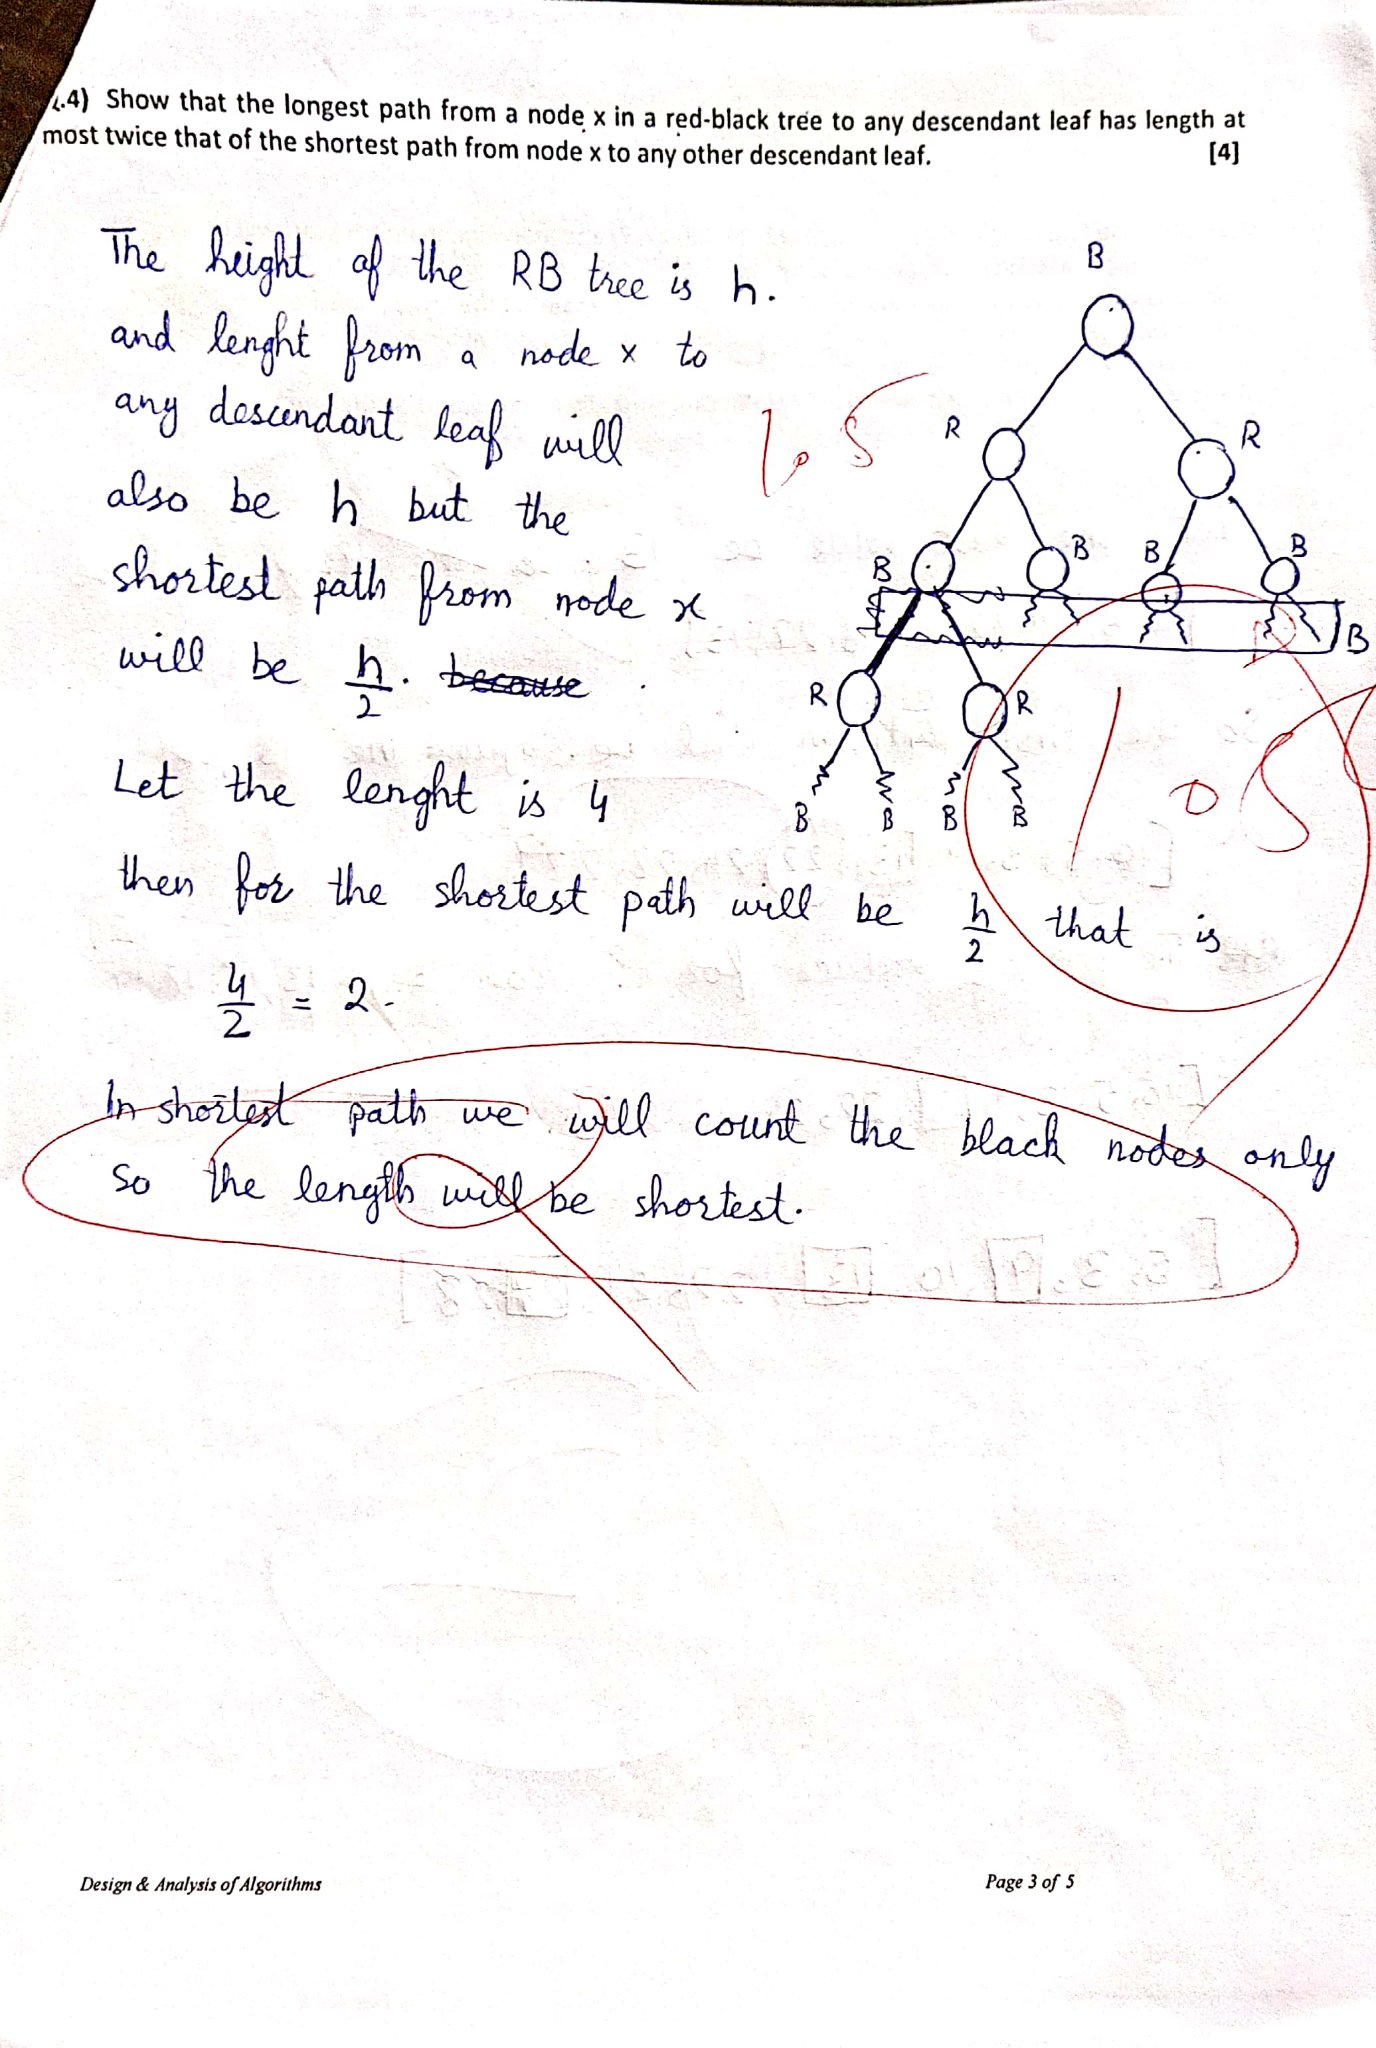 .4) Show that the longest path from a node x in a red-black tree to any descendant leaf has length at
most twice that of the shortest path from node x to any other descendant leaf. [4]
The height of the RB tree is h.
and lenght from a node x to
any descendant leaf will
also be h but the
shortest path from node x
will be h/2. because
Let the lenght is 4
then for the shortest path will be h/2 that is
4/2 = 2.
In shortest path we will count the black nodes only
so the length will be shortest.
B
R R
B B B B
B
R R
B B B B
1.5
1.5
Design & Analysis of Algorithms Page 3 of 5